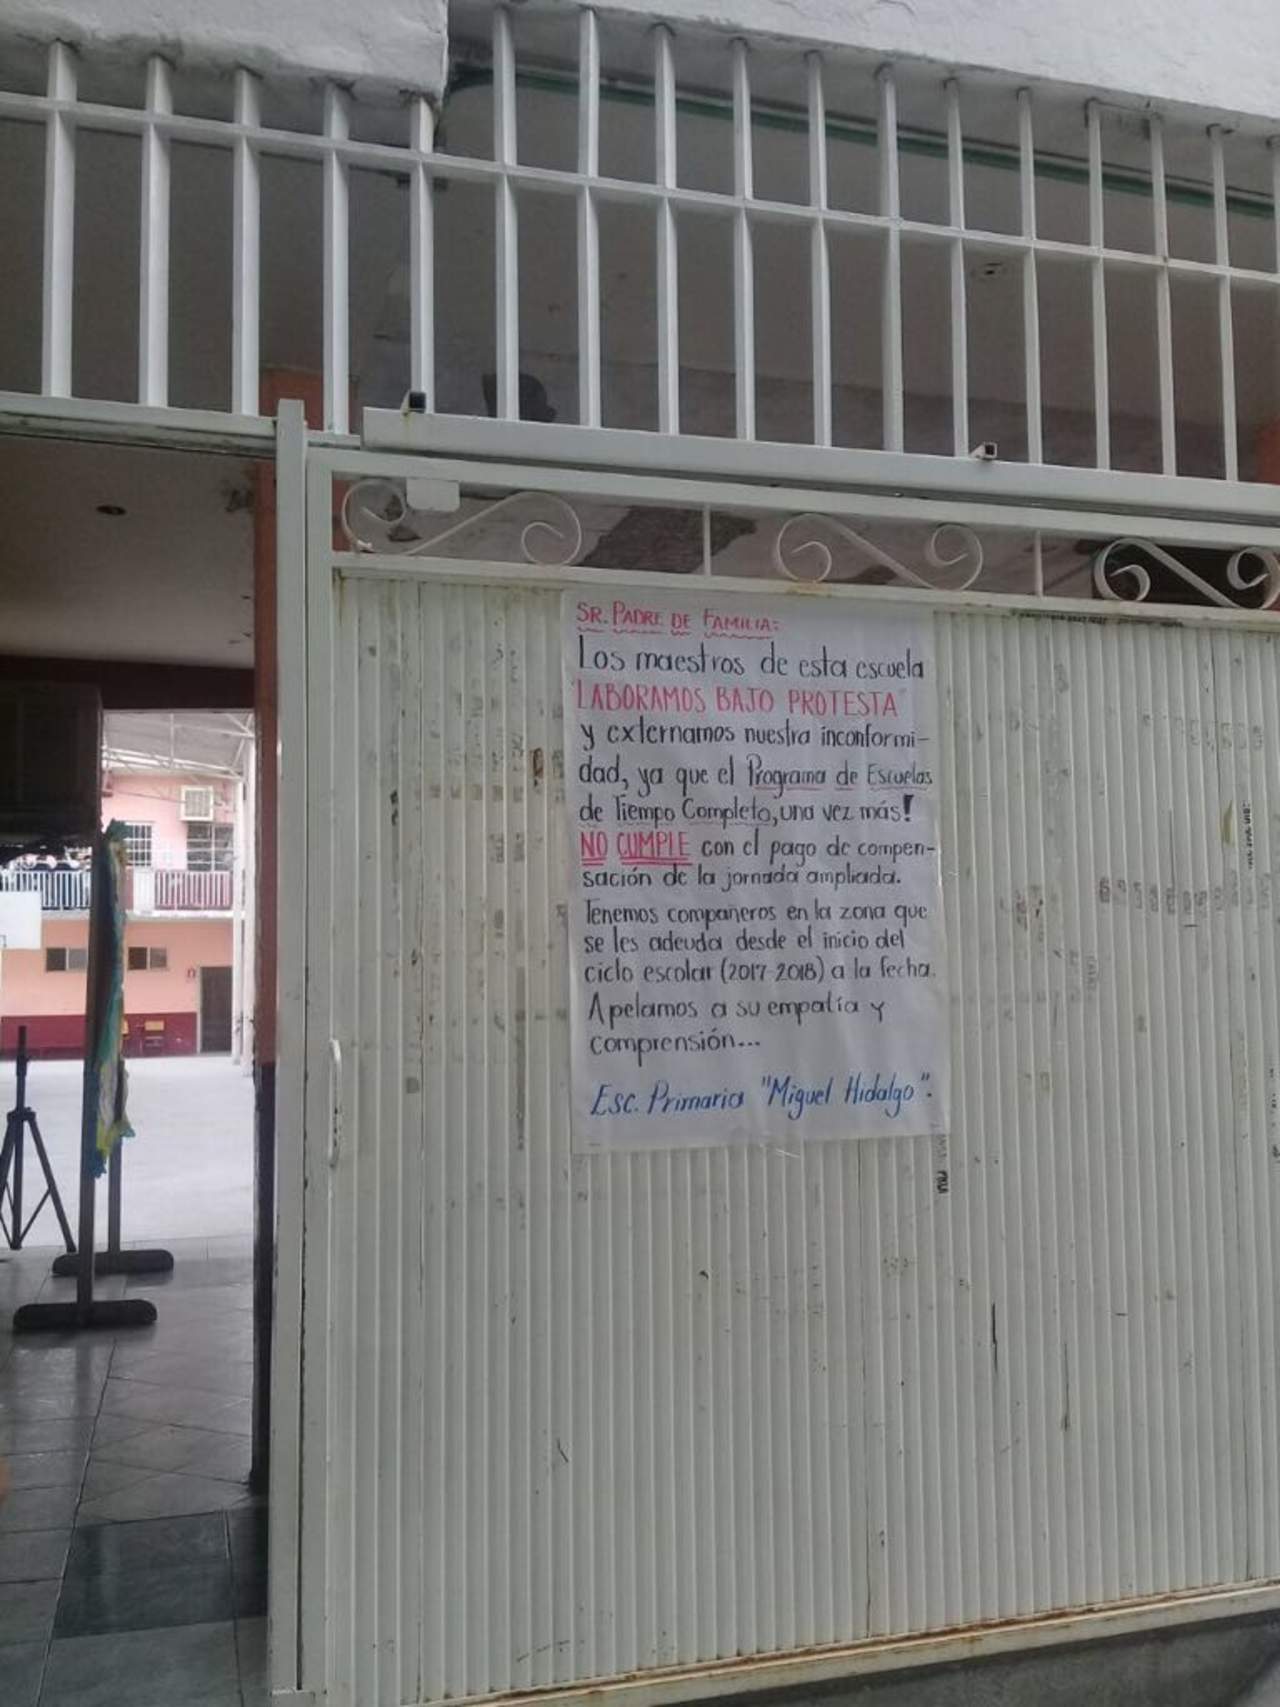 SR. PADRE DE FAMILIA:
Los maestros de esta escuela
"LABORAMOS BAJO PROTESTA"
y externamos nuestra inconformi-
dad, ya que el Programa de Escuelas
de Tiempo Completo, una vez más!
NO CUMPLE con el pago de compen-
sación de la jornada ampliada.
Tenemos compañeros en la zona que
se les adeuda desde el inicio del
ciclo escolar (2017-2018) a la fecha.
Apelamos a su empatía y
comprensión...
Esc. Primaria "Miguel Hidalgo".